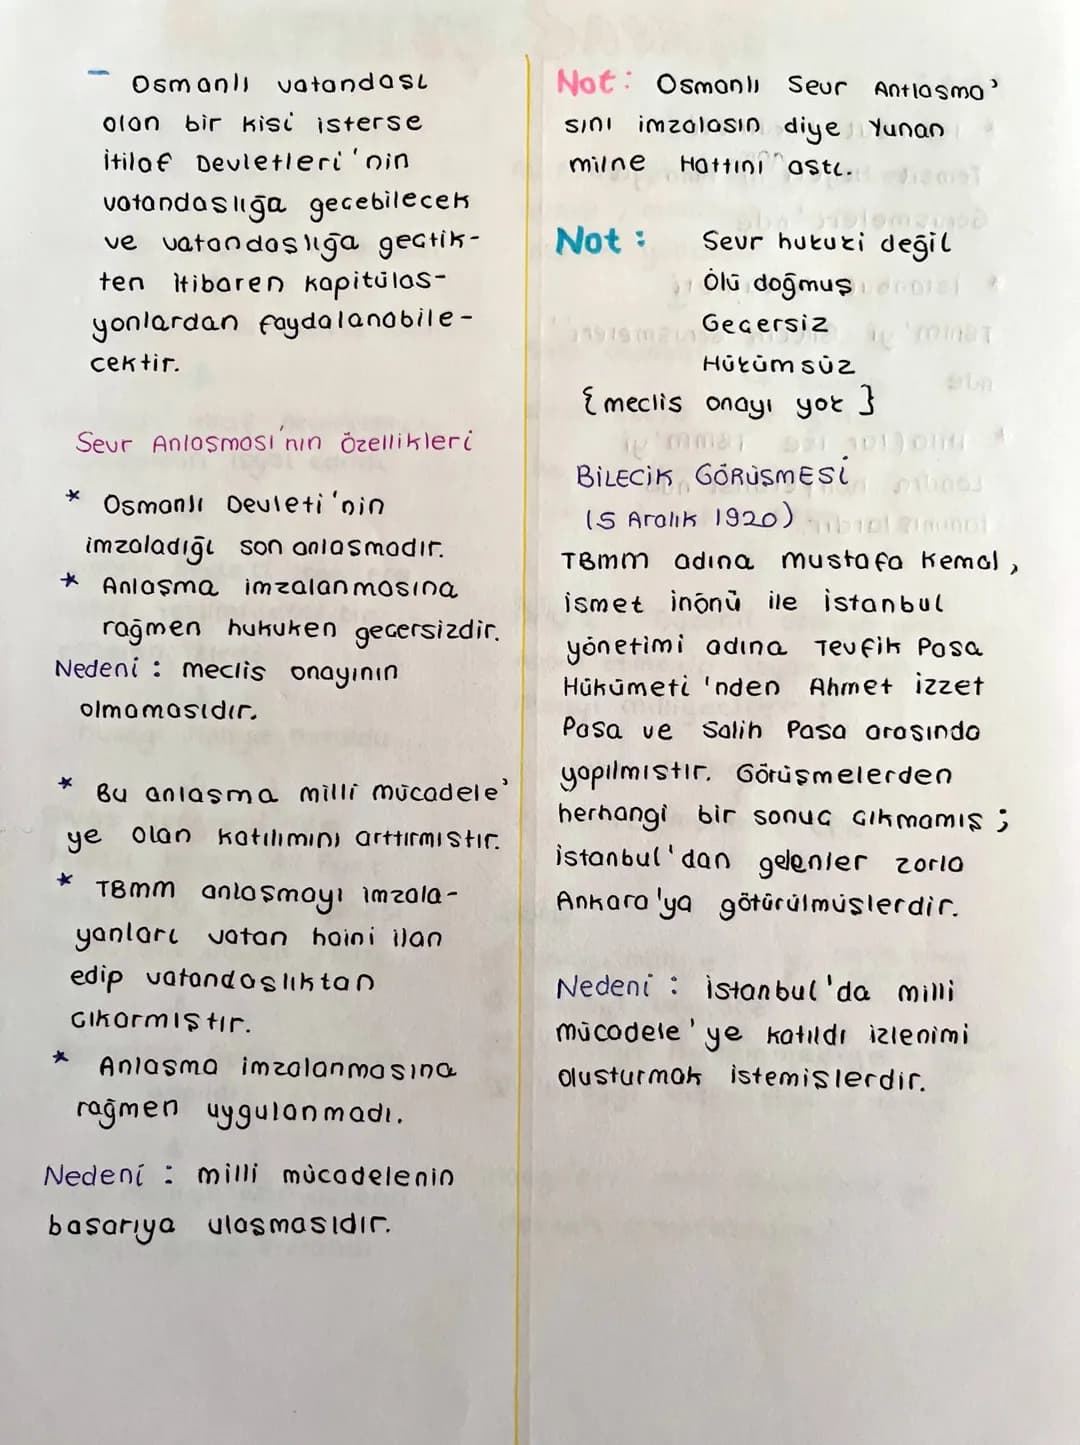 - Osmanlı vatandası
olan bir kisi isterse
İtilaf Devletleri'nin
vatandaslığa gecebilecek
ve vatandaslığa gectik-
ten itibaren kapitülas-
yonlardan faydalanabile-
cektir.
Sevr Anlasması'nın Özellikleri
* Osmanlı Devleti'nin
imzaladığı son anlasmadır.
* Anlaşma imzalanmasına
rağmen hukuken gecersizdir.
Nedeni : meclis onayının
olmamasıdır.
* Bu anlasma milli mücadele'
ye olan katılımını arttırmıstır.
* TBMM anlaşmayı imzala-
yanları vatan haini ilan
edip vatandaslıktan
cıkarmıştır.
* Anlasma imzalanmasına
rağmen uygulanmadı.
Nedeni : milli mücadelenin
basarıya ulaşmasıdır.
Not: Osmanlı Sevr Antlasma'
sını imzalasın diye Yunan
milne Hattını astı.
Not : Sevr hukuki değil
Ölü doğmuş
Geçersiz
Hükümsüz
{meclis onayı yok}
BİLECİK GÖRÜŞMESİ
(5 Aralık 1920)
TBMM adına mustafa Kemal,
ismet inönü ile istanbul
yönetimi adına Tevfik Pasa
Hükümeti'nden Ahmet izzet
Pasa ve Salih Pasa arasında
yapılmıstır. Görüşmelerden
herhangi bir sonuc cıkmamış ;
istanbul'dan gelenler zorla
Ankara'ya götürülmüşlerdir.
Nedeni : istanbul'da milli
mücadele'ye katıldı izlenimi
olusturmak istemişlerdir.